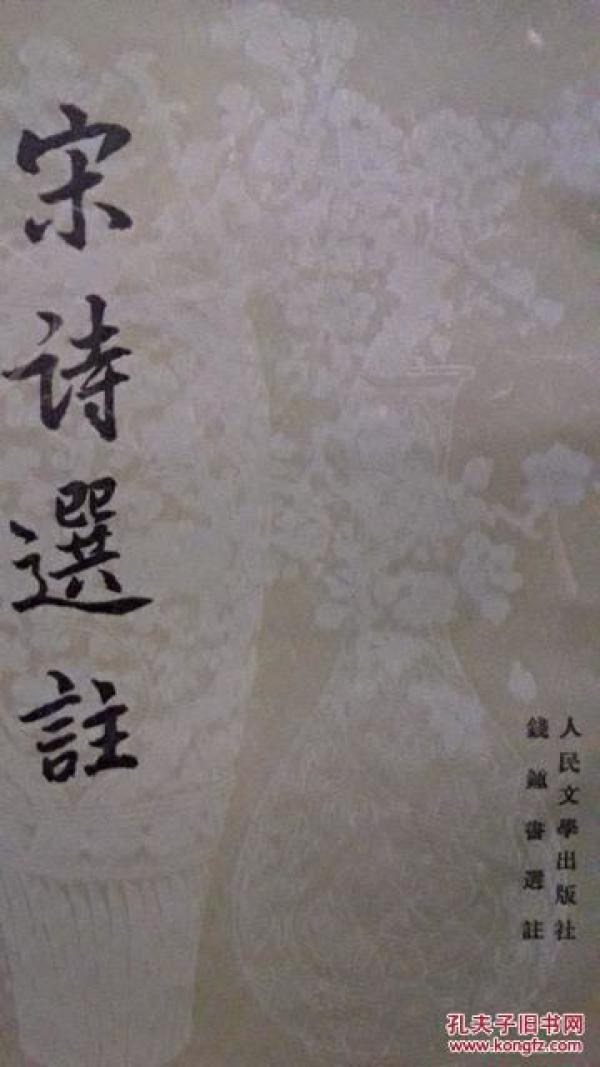 宋詩選註
人民文學出版社
錢鍾書選註
孔夫子旧书网
www.kongfz.com